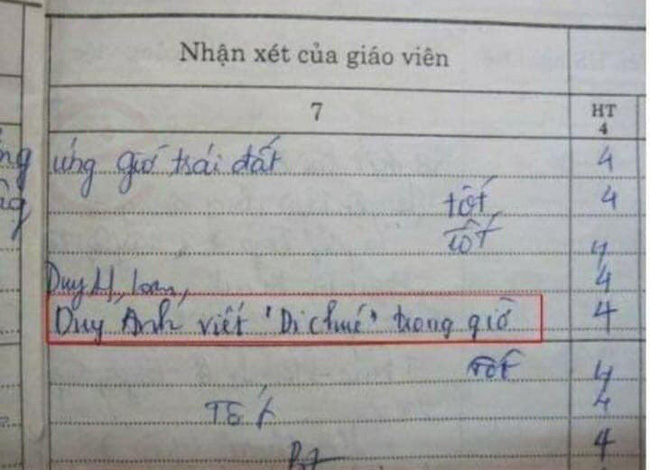 Nhận xét của giáo viên
7 HT 4
ứng giờ trái đất 4
tốt 4
tốt 4
Duy H, loan, 4
Duy Anh viết "Di chúc" trong giờ 4
Tốt 4
TốT 4
BT 4